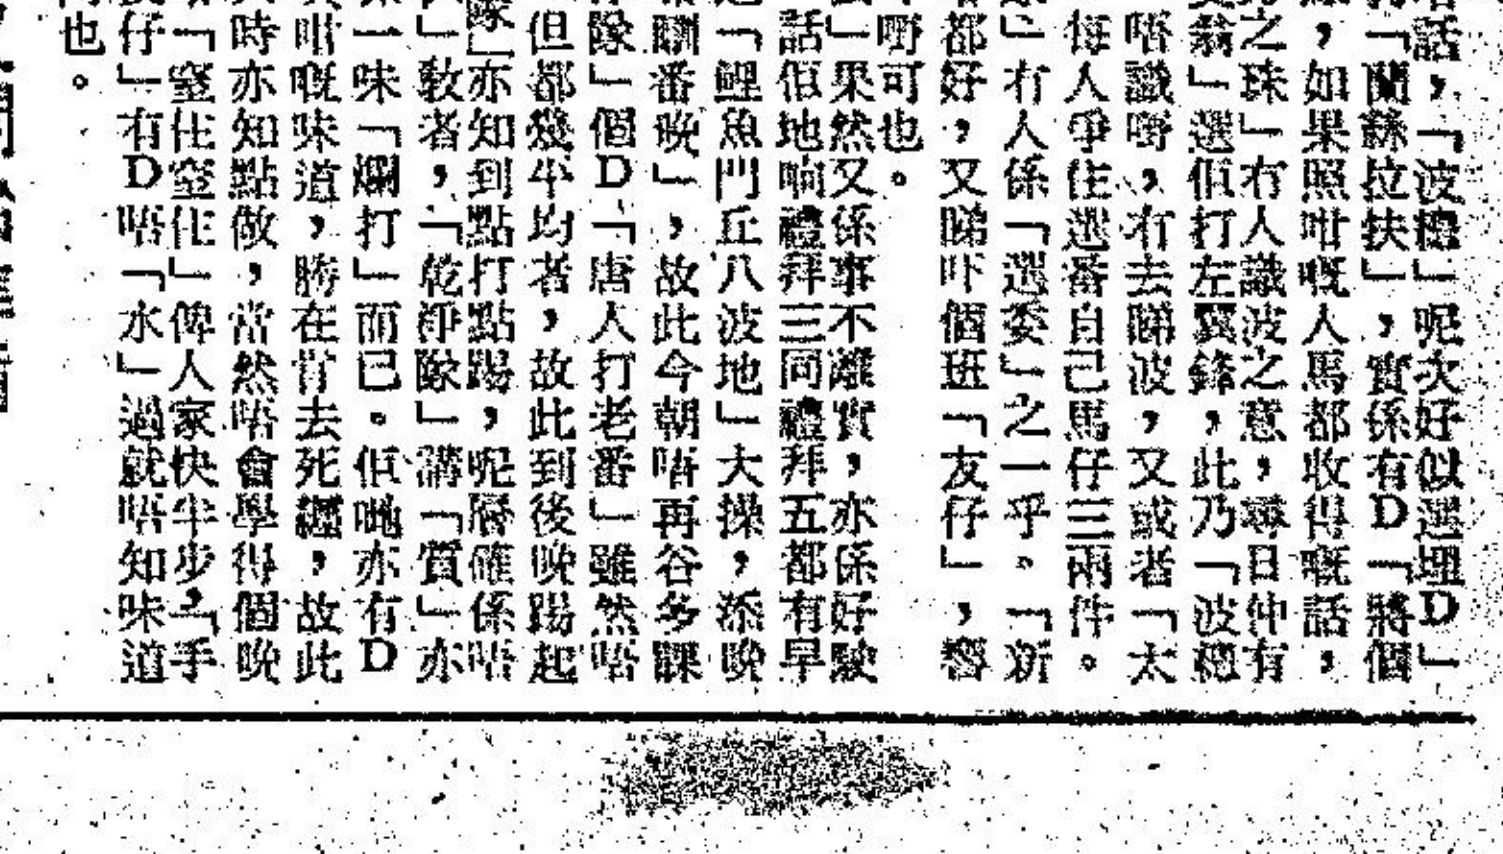 話，「波糭」呢次好似選埋D」
「蘭絲拉扶」，實係有D「將個
，如果照咁嘅人馬都收得嘅話，
之珠」冇人識波之意，尋日仲有
翁」選佢打左翼鋒，此乃「波糭
唔識嘢，冇去睇波，又或者「太
每人爭住選番自己馬仔三兩件。
」冇人係「選委」之一乎。「新
都好，又睇吓個班「友仔」，響
嘢可也。
」果然又係事不離實，亦係好駛
話佢地响禮拜三同禮拜五都有早
「鯉魚門丘八波地」大操，添晚
瞓番晚」，故此今朝唔再谷多課
隊」個D「唐人打老番」雖然唔
但都幾平均者，故此到後晚踢起
隊」亦知到點打點踢，呢層確係唔
」教者，「乾淨隊」講「質」亦
一味「爛打」而已。佢哋亦有D
咁嘅味道，勝在肯去死纏，故此
時亦知點做，當然唔會學得個晚
「窒住窒住」俾人家快半步，「手
仔」有D唔「水」過就唔知味道
也。